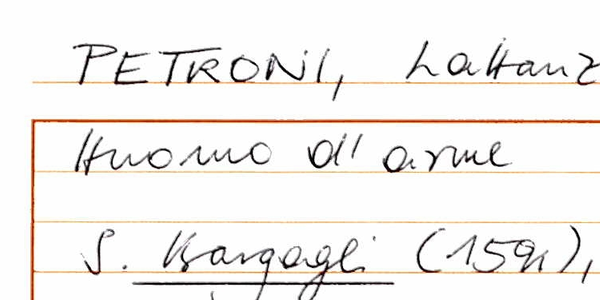 PETRONI, Lattanz
Huomo d'arme
S. Bargagli (1591),